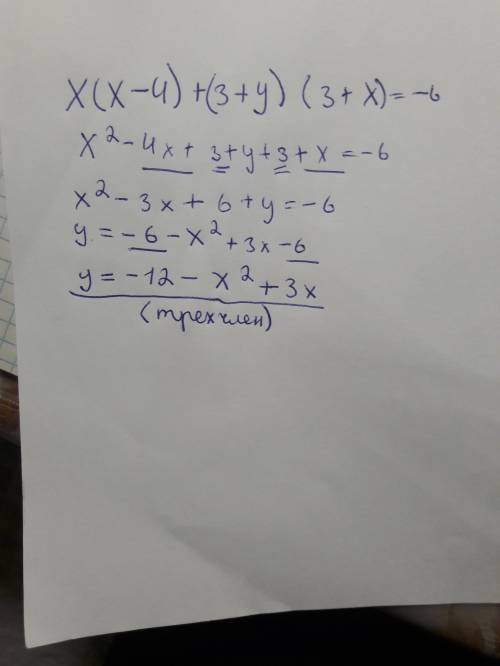 x(x-4)+(3+y) (3+x)=-6
x²-4x+3+y+3+x=-6
x²-3x+6+y=-6
y=-6-x²+3x-6
y=-12-x²+3x
(трехчлен)